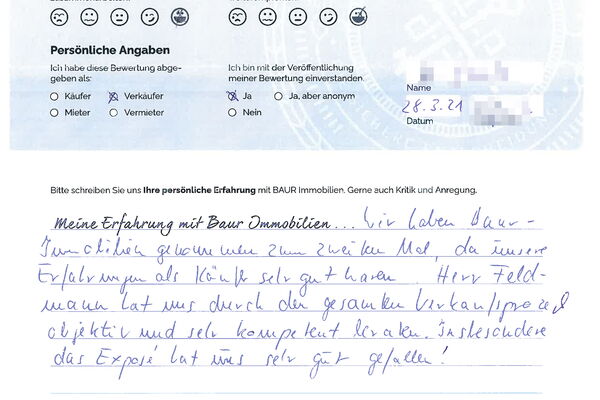 Persönliche Angaben
Ich habe diese Bewertung abge-
geben als:
Käufer Verkäufer
Mieter Vermieter
Ich bin mit der Veröffentlichung
meiner Bewertung einverstanden
Ja Ja, aber anonym
Nein
Name
28.3.21
Datum
Bitte schreiben Sie uns Ihre persönliche Erfahrung mit BAUR Immobilien. Gerne auch Kritik und Anregung.
Meine Erfahrung mit Baur Immobilien... Wir haben Baur-
Immobilien genommen zum zweiten Mal, da unsere
Erfahrungen als Käufer sehr gut waren. Herr Feld-
mann hat uns durch den gesamten Verkaufsprozeß
objektiv und sehr kompetent beraten. Insbesondere
das Exposé hat uns sehr gut gefallen!